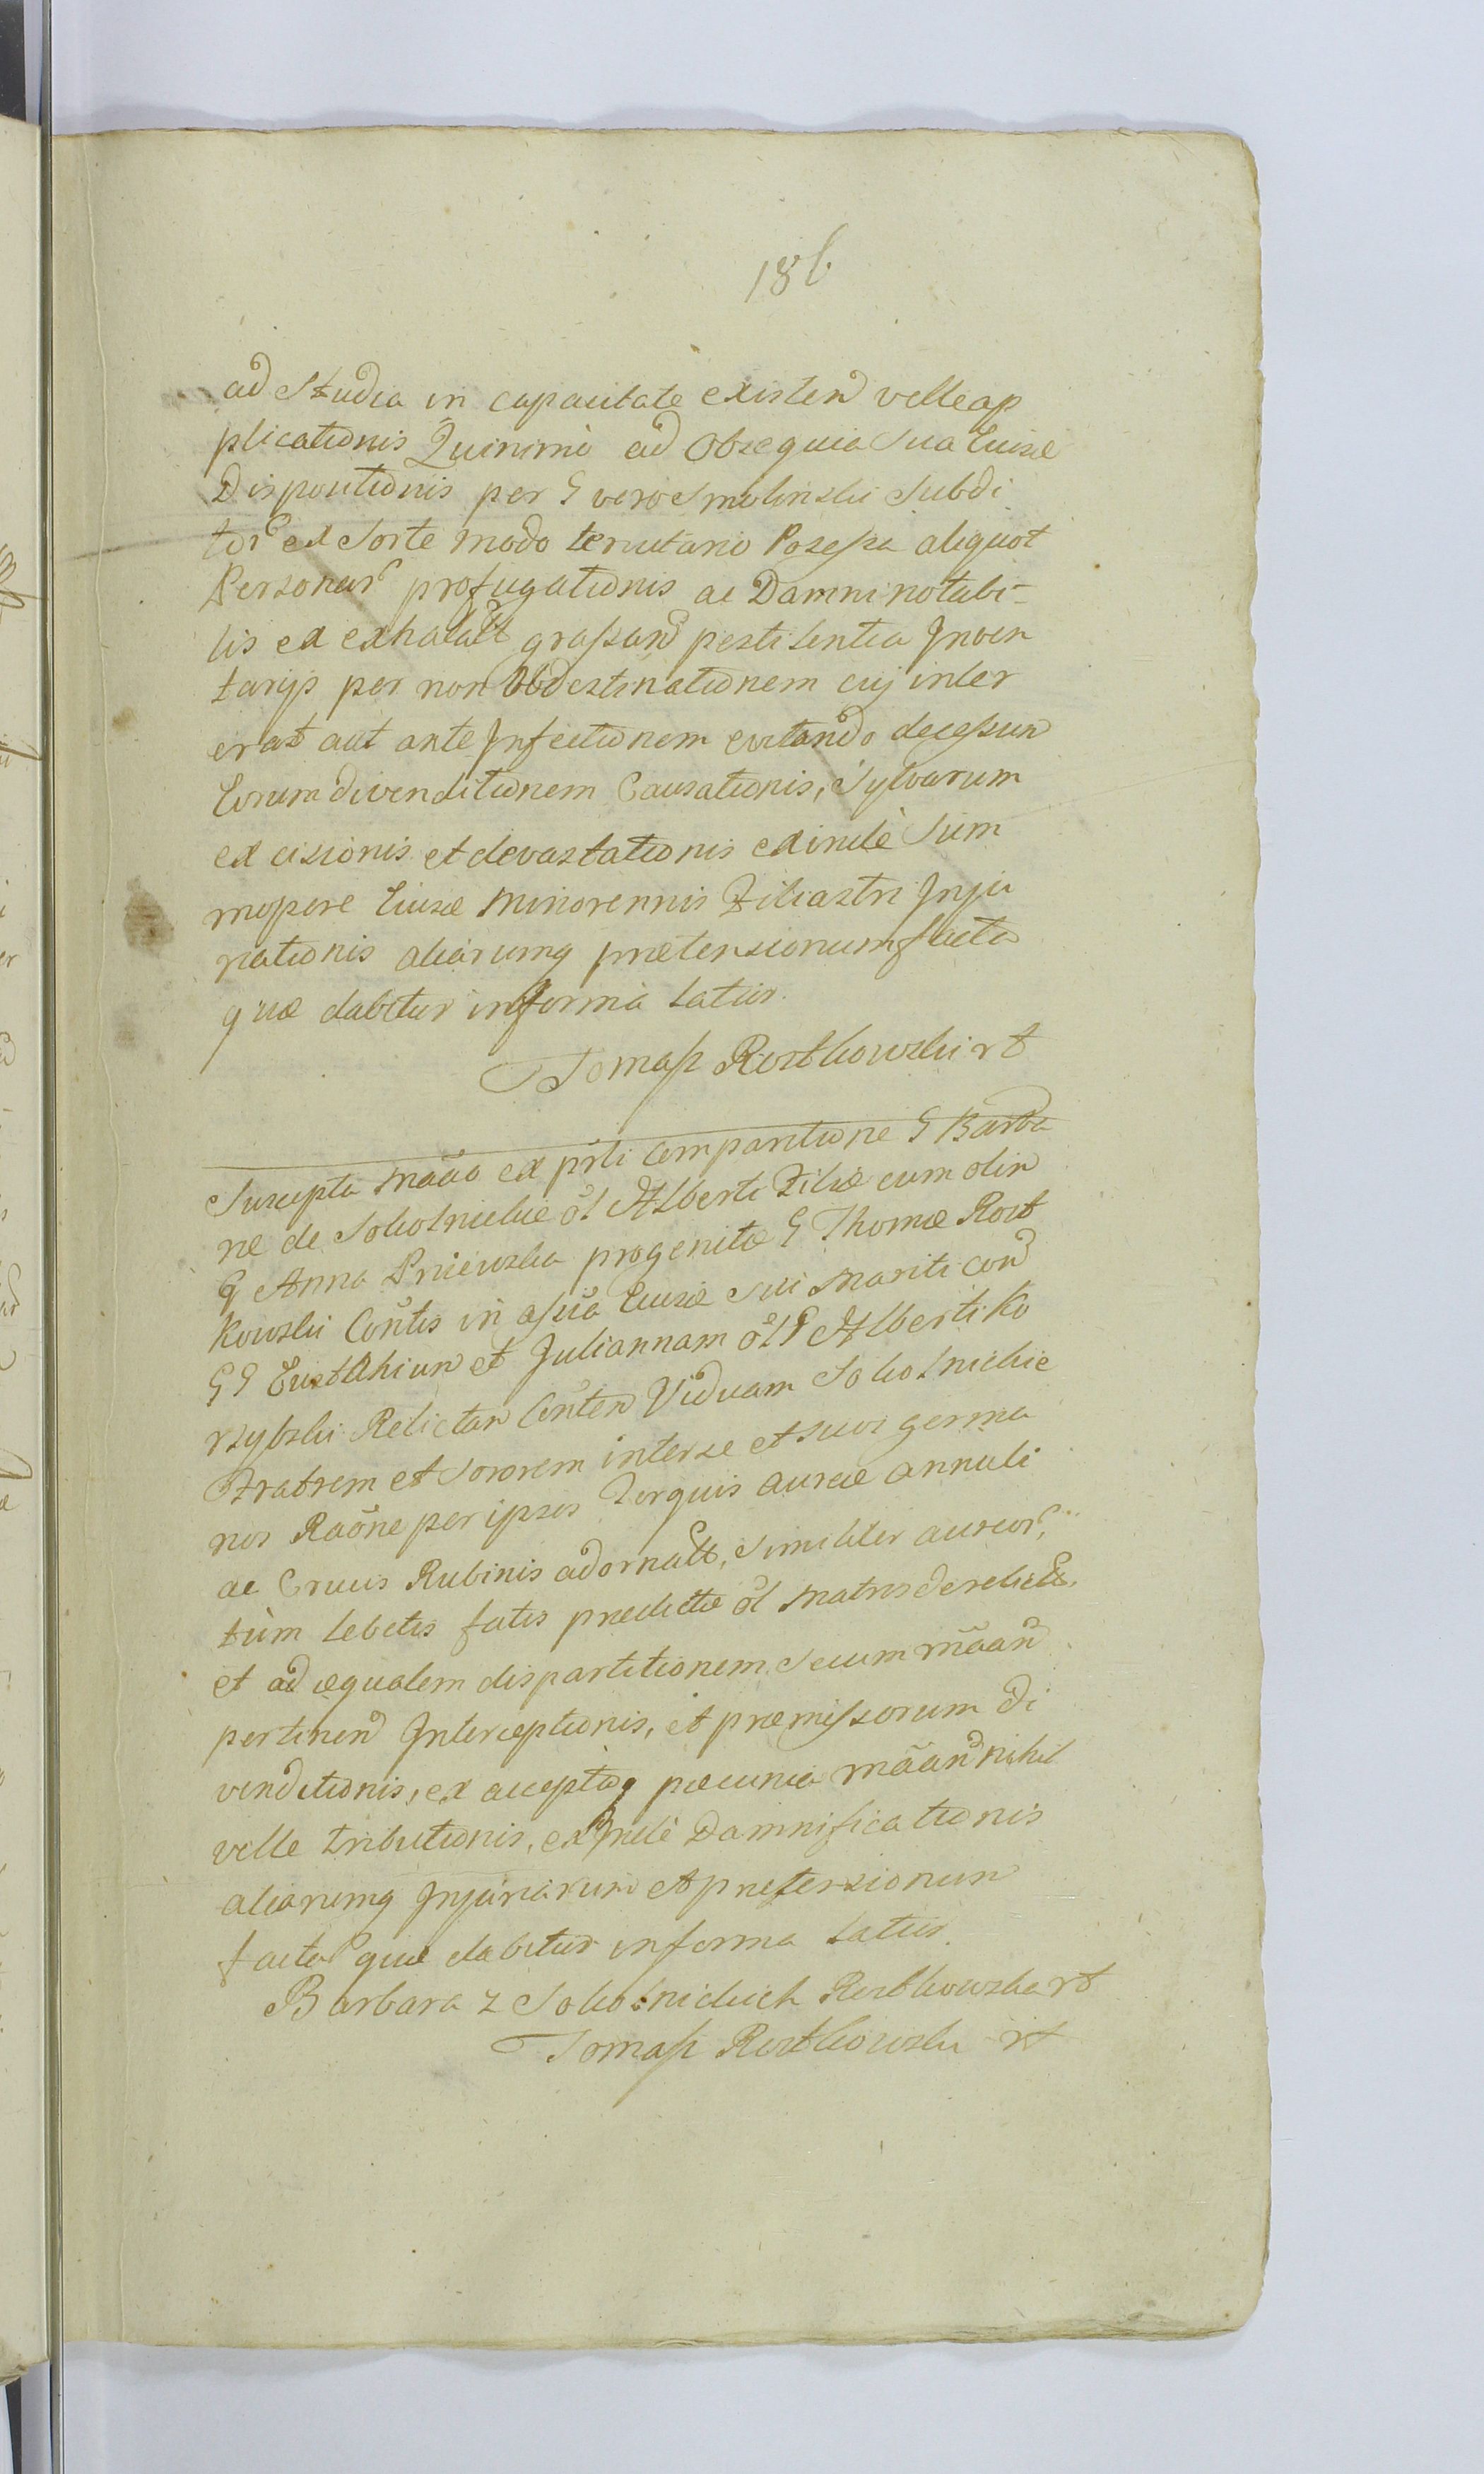 186
ad Studia in capacitate existen velle ap
plicationis Quinimò ad Obsequia sua Eiusē
Dispositionis per G vero Smolinski Subdi
tor ex Sorte modo tenutario Possessa aliquot
Personar profugationis ac Damni notabi-
lis ex exhalatt grassan pestilentia Inven
tarijs per non Obdestinationem cuj inter
erat aut ante Infectionem evitando decessun
Eorum divenditionem Causationis, Sylvarum
excisionis et devastationis exindè Sum
mopere Eiusē minorennis Filiastri Inju
riationis aliarumq prætensionum facta
quæ dabitur in forma latiùs.
Tomasz Rostkowski rt
Suscepta mãao ex psñti comparitione G Barba
ræ de Sokolnickie ol Alberti Filiæ cum olim
G Anna Pniewska progenitæ G Thomæ Rost
kowski Contis in assña Eiusē Sui Mariti con
GG Eustachium et Juliannam ol G Alberti Ko
rzybski Relictan Conten Viduam Sokolnickie
Fratrem et Sororem inter se et suos germa
nos Raõne per ipsos Torquis aureæ annuli
ac Crucis Rubinis adornatt, Similiter aureor,
tùm Lebetis fatis prædictæ ol Matris derelictt.
et ad æqualem dispartitionem Secum mãan
pertinen Interceptionis, et præmissorum di
venditionis, ex acceptaq pæcunia mãan nihil
velle tributionis, exindè Damnificationis
aliarumq Injuriarum et prætensionum
facta quæ dabitur in forma latiùs.
Barbara z Sokolnickich Rostkowska rt
Tomasz Rostkowski rt